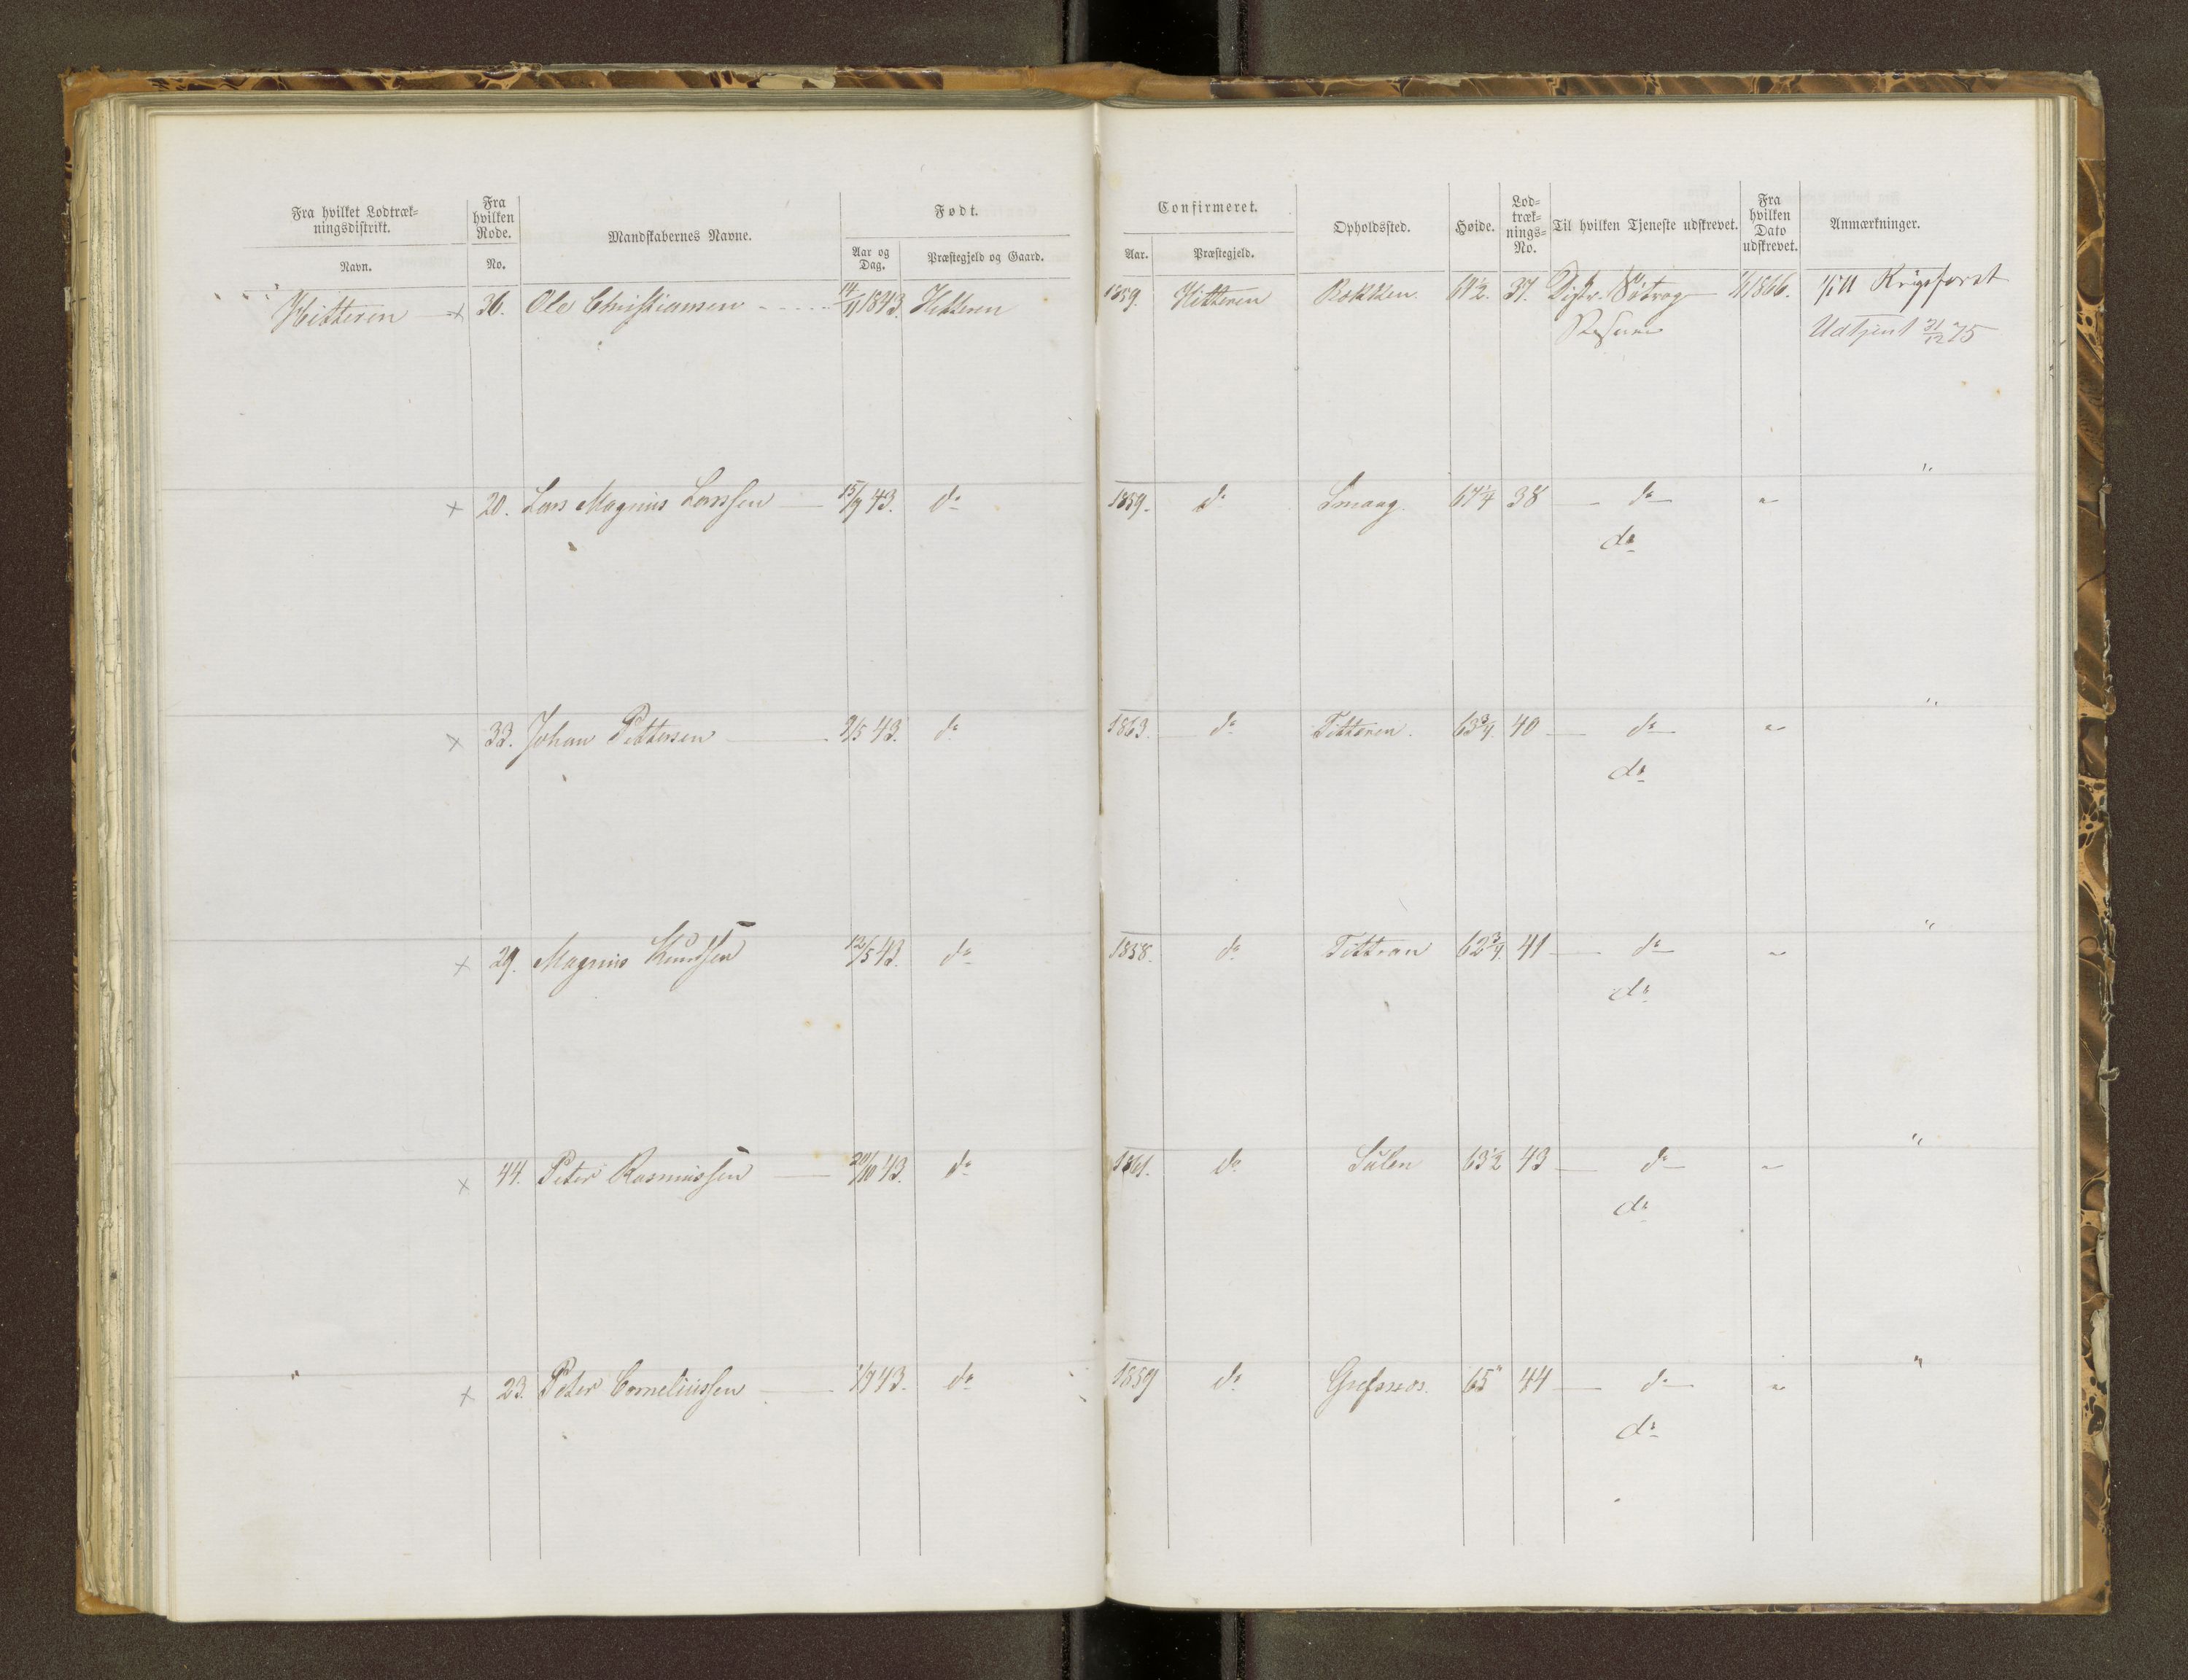 Fra hvilket Lodtræk-
ningsdistrikt.
Navn.
Fra
hvilken
Rode.
No.
Mandskabernes Navne.
Født.
Aar og
Dag.
Præstegjeld og Gaard.
Confirmeret.
Aar.
Præstegjeld.
Opholdssted.
Høide.
Lod-
træk-
nings-
No.
Til hvilken Tjeneste udskrevet.
Fra
hvilken
Dato
udskrevet.
Anmærkninger.
Hitteren × 36. Ole Christiansen 14/11 1843. Hitteren 1859. Hitteren Bakken. 61 1/2. 37. Distr. 1/1 1866.
Reserve Udtjent 31/12 75
× 20. Lars Magnus Larssen 15/9 43. do 1859. do Smaag. 67 1/4 38 do "
do
× 33. Johan Pettersen 9/5 43. do 1863. do Titteren. 63 3/4. 40 do "
do
× 29. Magnus Knudsen 12/5 43. do 1858. do Tittran 62 3/4. 41 do "
do
× 44. Peter Rasmussen 20/10 43. do 1861. do Sulen 63 1/2 43 do "
do
" × 23. Peter Corneliussen 1/7 43. do 1859 do 65" 44 do "
do